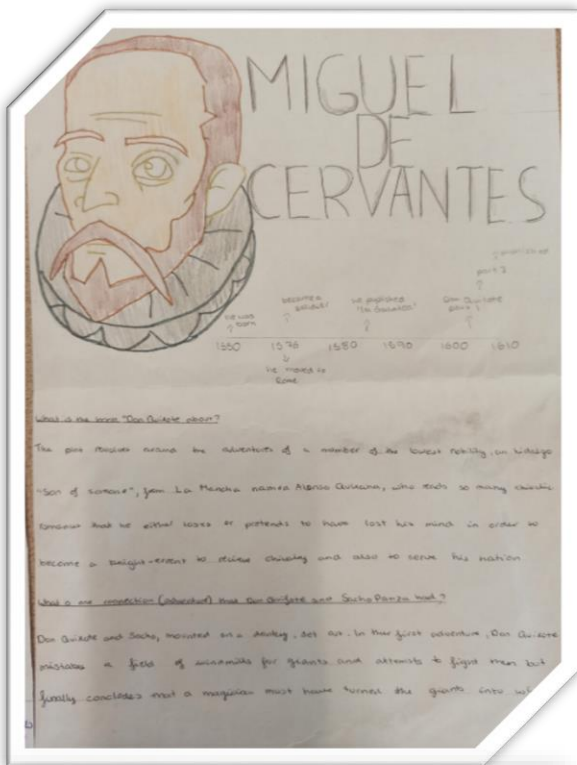 MIGUEL
DE
CERVANTES
part 2
he was
born
became a
soldier
he published
"La Galatea"
Don Quixote
part 1
1550 1570 1580 1590 1600 1610
he moved to
Rome
What is the book "Don Quixote about?
The plot revolves around the adventures of a member of the lowest nobility, an hidalgo
"Son of someone", from La Mancha named Alonso Quixana, who reads so many chivalric
romances that he either loses or pretends to have lost his mind in order to
become a knight-errant to revive chivalry and also to serve his nation
What is one connection (adventure) that Don Quixote and Sacho Panza had?
Don Quixote and Sacho, mounted on a donkey, set out. In their first adventure, Don Quixote
mistakes a field of windmills for giants and attempts to fight them but
finally concludes that a magician must have turned the giants into